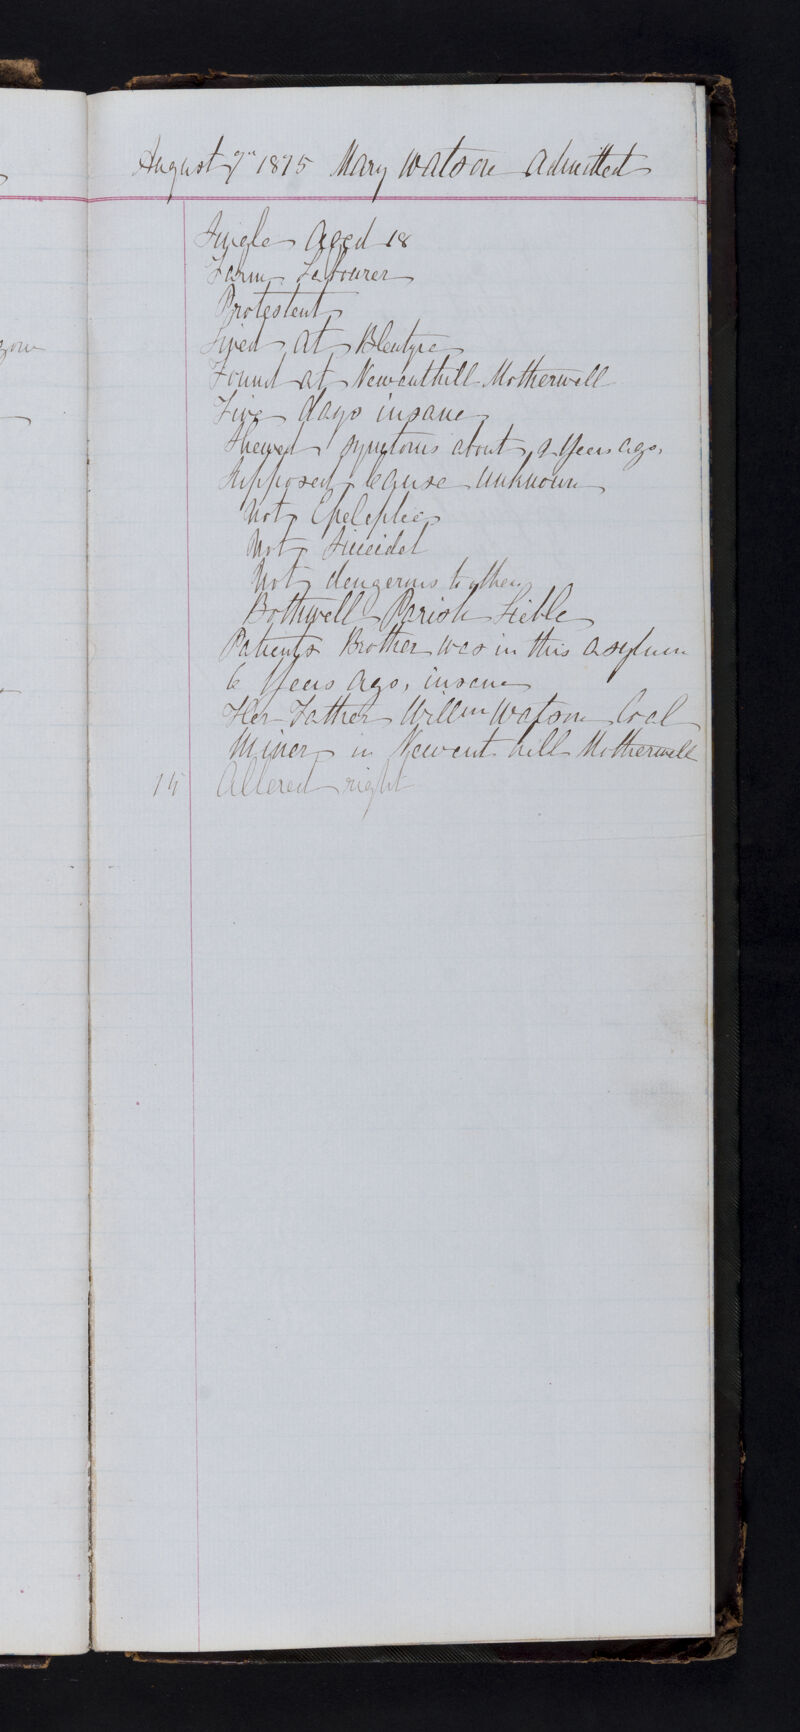 August 7th 1875 Mary Watson Admitted
Single Aged 18
Farm Labourer
Protestent
Lived at Blentyre
Found at Newarthill Motherwell
Five days insane
Shewed symptoms about a year ago
Supposed cause unknown
Not Epeleptic
Not Suicidal
Not dengerous to others
Bothwell Parish Lieble
Patients Brother was in this asylum
6 Years ago, insane
Her Father Willm Watson Coal
Miner in Newart hill Motherwell
15 Allered right